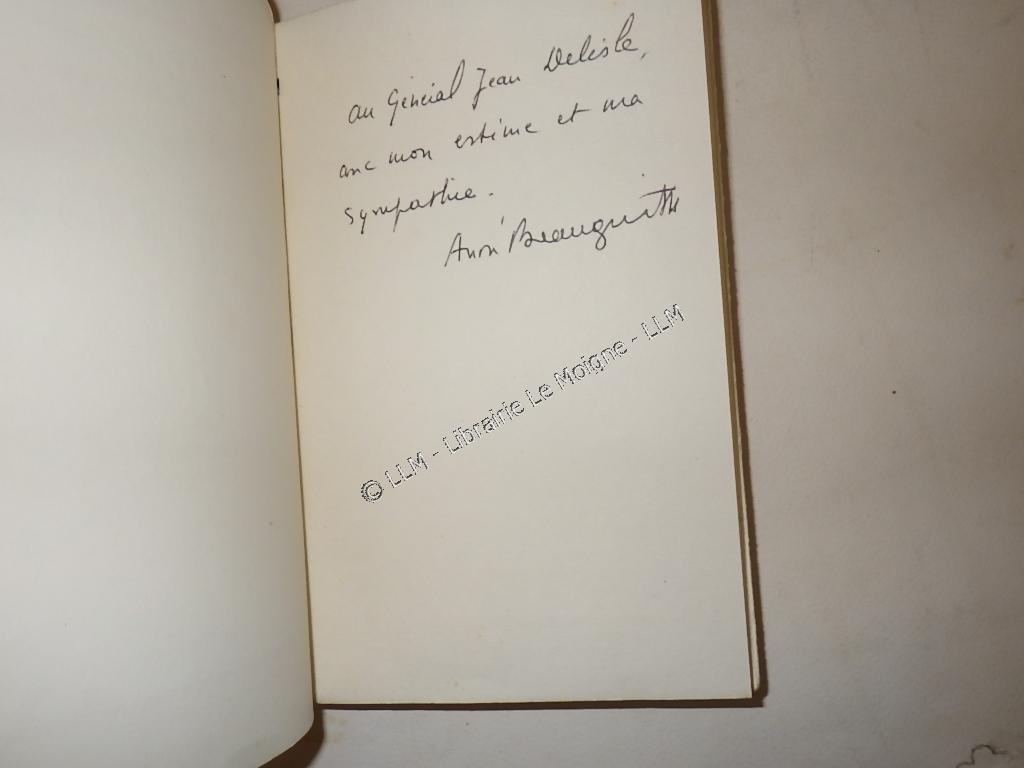 au Général Jean Delisle,
avec mon estime et ma
sympathie.
André Beauguitte
© LLM - Librairie Le Moigne - LLM